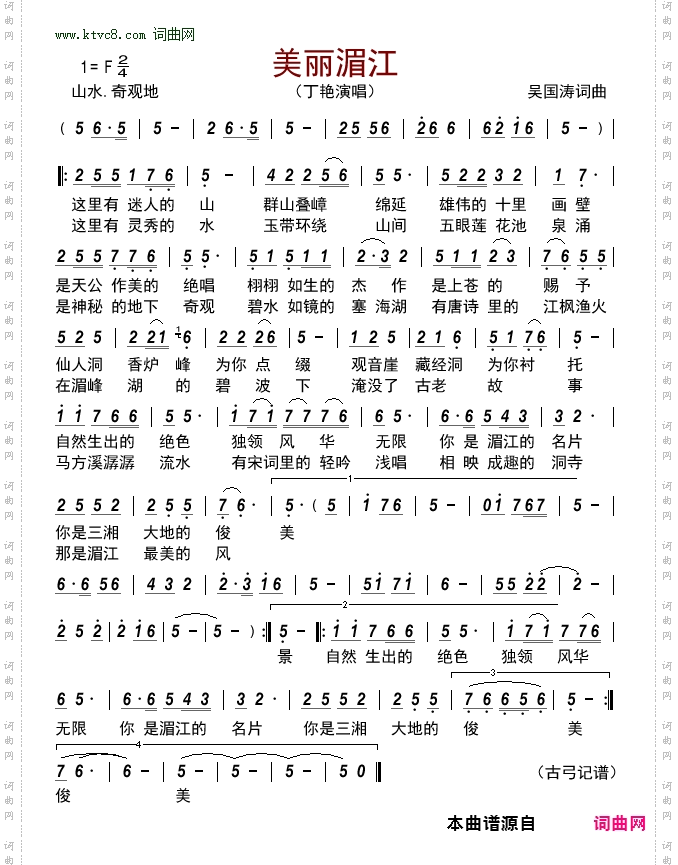 www.ktvc8.com 词曲网
1=F 2/4
美丽湄江
山水.奇观地
（丁艳演唱）
吴国涛词曲
( 5 6·5 | 5 - | 2 6·5 | 5 - | 25 56 | 26 6 | 62 16 | 5 - )
|: 255 176 | 5 - | 42 256 | 55· | 522 32 | 1 7·
这里有 迷人的 山 群山叠嶂 绵延 雄伟的 十里 画 壁
这里有 灵秀的 水 玉带环绕 山间 五眼莲 花池 泉 涌
255 776 | 55· | 51 511 | 2·32 | 511 23 | 76 55
是天公 作美的 绝唱 栩栩 如生的 杰 作 是上苍的 赐 予
是神秘 的地下 奇观 碧水 如镜的 塞 海湖 有唐诗 里的 江枫渔火
525 | 221 16 | 22 26 | 5 - | 125 | 216 | 51 76 | 5 -
仙人洞 香炉 峰 为你 点 缀 观音崖 藏经洞 为你衬 托
在湄峰 湖 的 碧 波 下 淹没了 古老 故 事
11 766 | 55· | 171 7776 | 65· | 6·6 543 | 32·
自然生出的 绝色 独领 风 华 无限 你 是 湄江的 名片
马方溪潺潺 流水 有宋词里的 轻吟 浅唱 相 映 成趣的 洞寺
2552 | 255 | 76· | 5·(5 | 1 76 | 5 - | 01 767 | 5 -
1
你是三湘 大地的 俊 美
那是湄江 最美的 风
6·6 56 | 432 | 2·3 16 | 5 - | 51 71 | 6 - | 55 22 | 2 -
252 | 216 | 5 - | 5 - ) :| 5 - |: 11 766 | 55· | 171 776
2
景 自然 生出的 绝色 独领 风华
65· | 6·6 543 | 32· | 2552 | 255 | 76656 | 5 - :|
3
无限 你 是湄江的 名片 你是三湘 大地的 俊 美
4
76· | 6 - | 5 - | 5 - | 50
（古弓记谱）
俊 美
本曲谱源自 词曲网